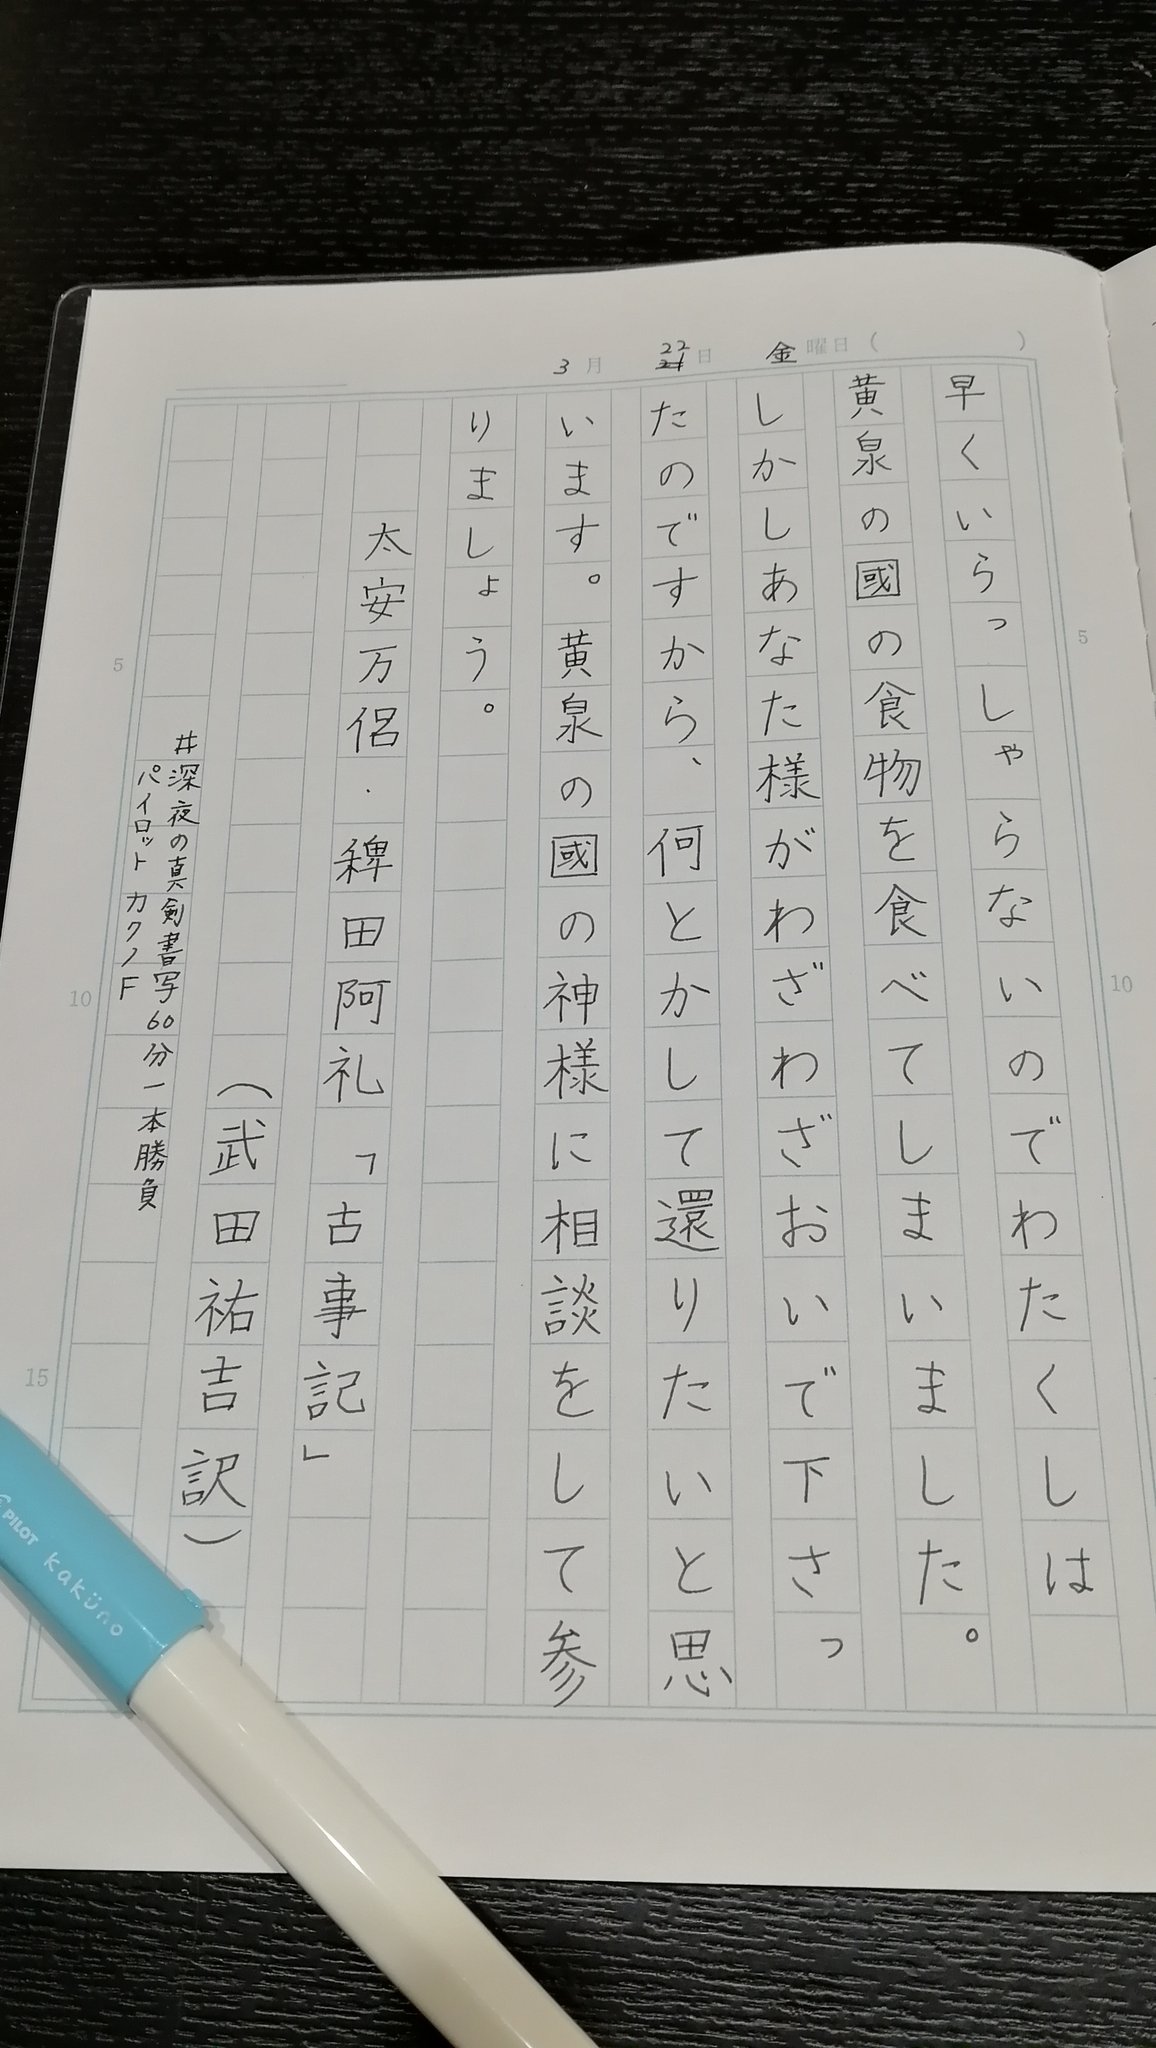 3月 22 21日 金曜日(　)
早くいらっしゃらないのでわたくしは
黄泉の國の食物を食べてしまいました。
しかしあなた様がわざわざおいで下さっ
たのですから、何とかして還りたいと思
います。黄泉の國の神様に相談をして参
りましょう。
太安万侶・稗田阿礼「古事記」
(武田祐吉訳)
#深夜の真剣書写60分一本勝負
パイロットカクノF
5
10
15
5
10
PILOT kaküno